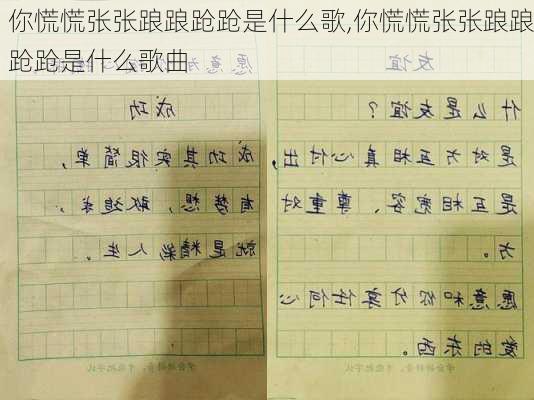 你慌慌张张踉踉跄跄是什么歌,你慌慌张张踉踉
跄跄是什么歌曲
成功
成功其实很简单，
有梦想，敢追求，
就是精彩人生。
友谊
什么是友谊？
是对方互相真心付出，
是互相宽容、尊重对
方。
愿意和你分享任何心
爱的东西。